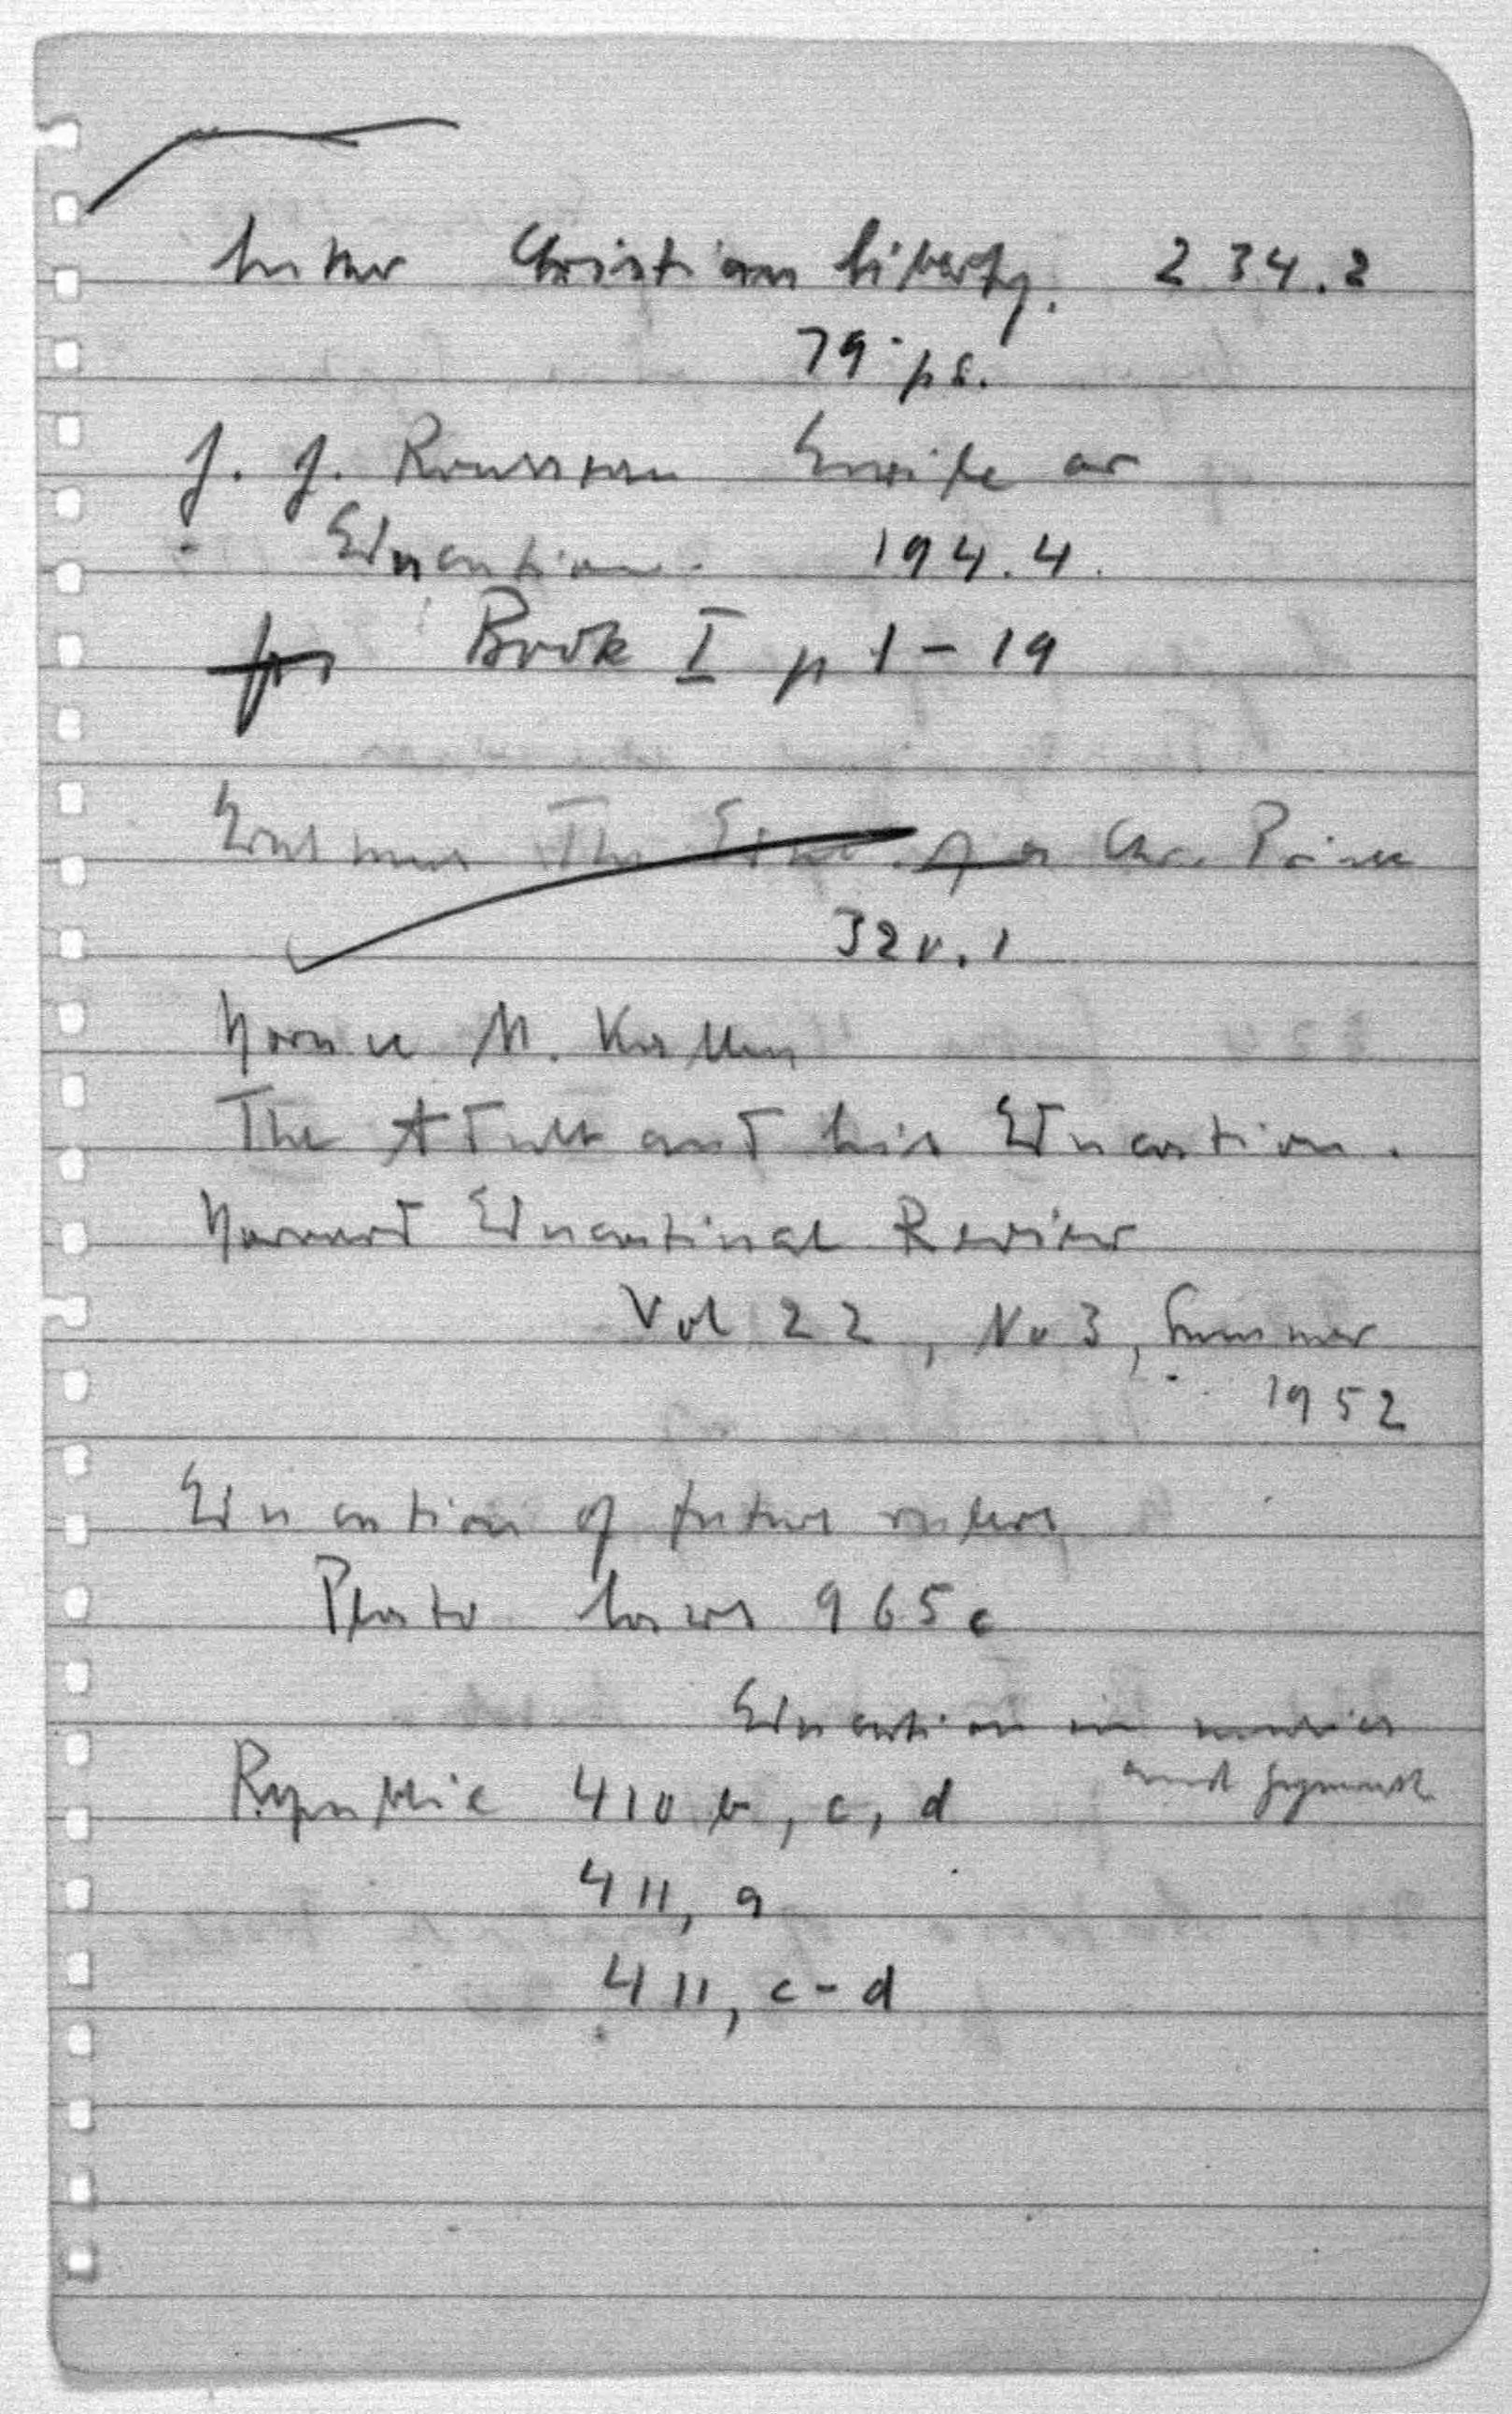 Luther Christian liberty. 234.2
79 ps.
J. J. Rousseau Emile or
Education. 194.4
Book I p 1-19
Erasmus The Educ. of a Chr. Prince
320.1
Horace M. Kallen
The Adult and his Education.
Harvard Educational Review
Vol 22, No 3, Summer
1952
Education of future rulers
Plato Laws 965c
Education in music
and gymnast.
Republic 410 b, c, d
411, a
411, c-d